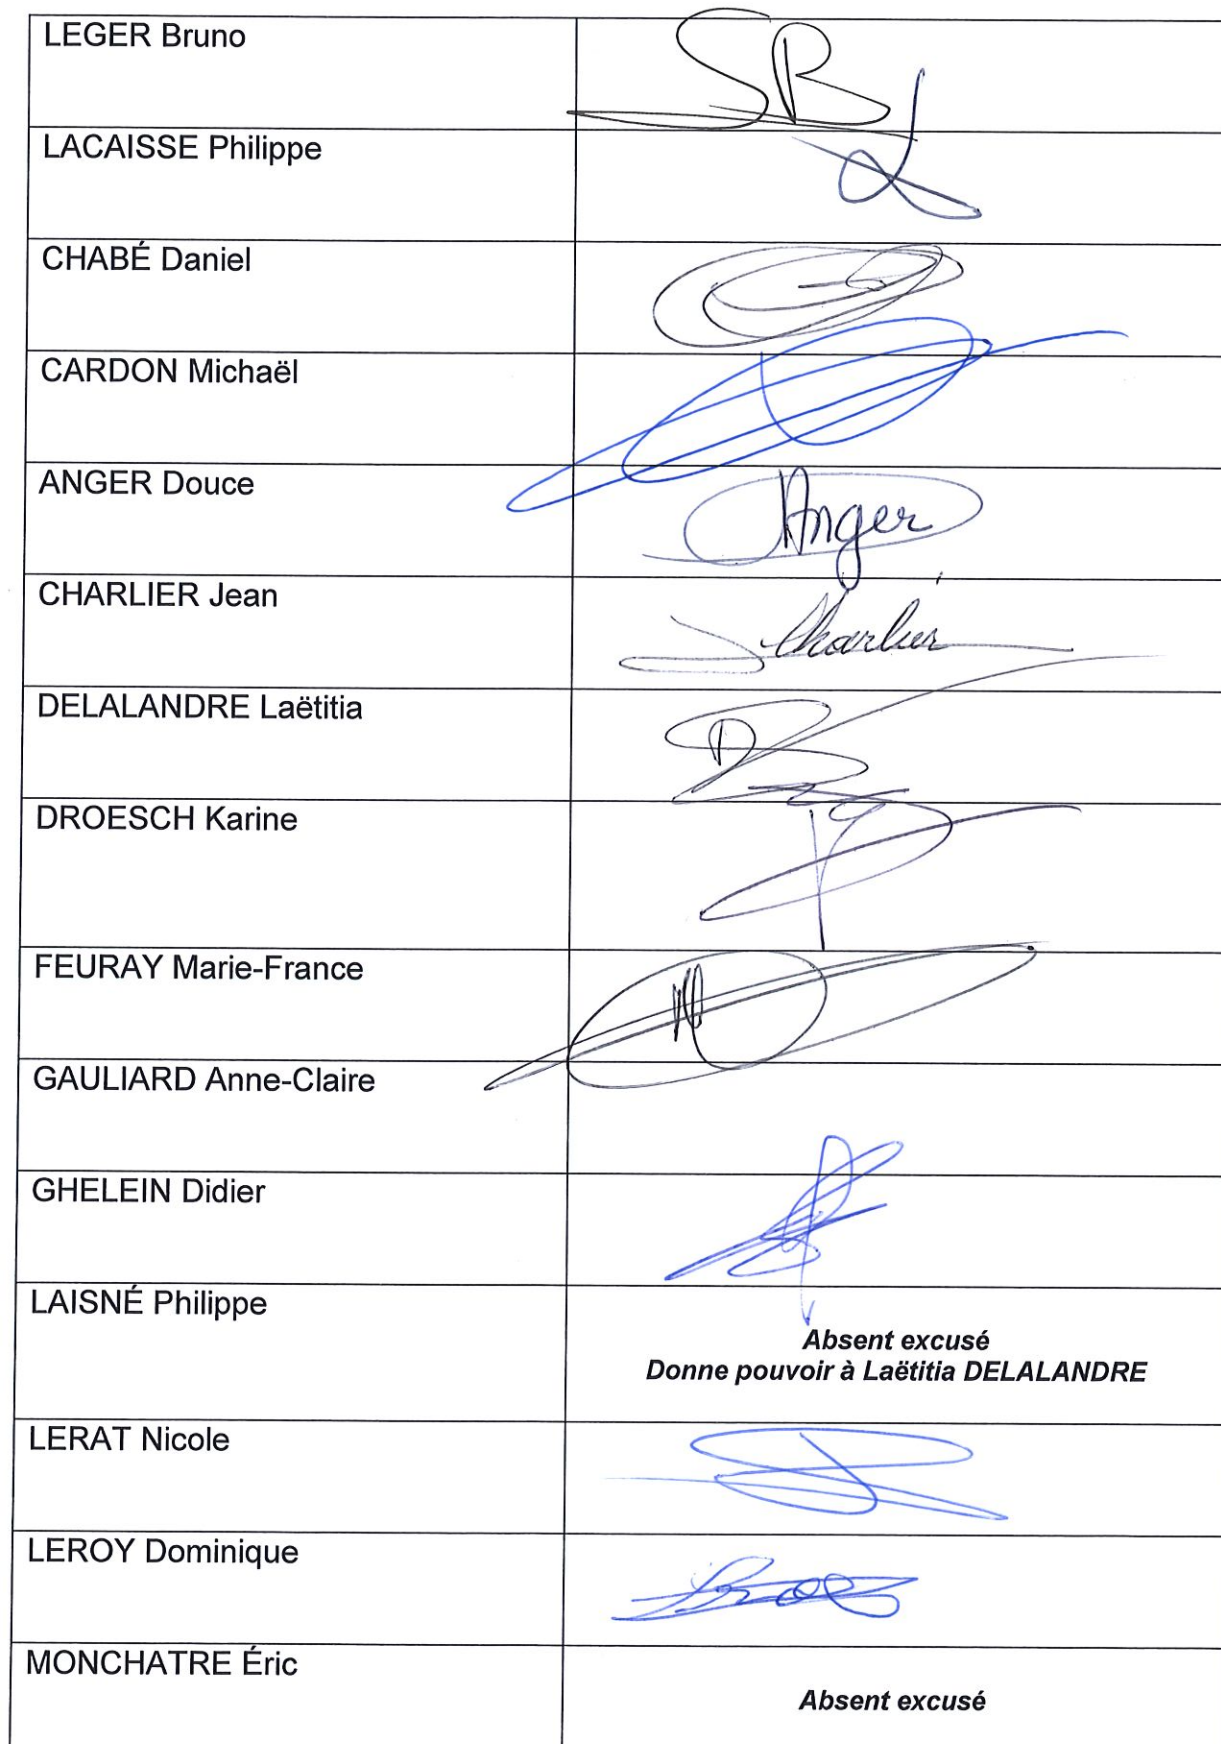 LEGER Bruno
LACAISSE Philippe
CHABÉ Daniel
CARDON Michaël
ANGER Douce
Anger
CHARLIER Jean
J Charlier
DELALANDRE Laëtitia
DROESCH Karine
FEURAY Marie-France
GAULIARD Anne-Claire
GHELEIN Didier
LAISNÉ Philippe
Absent excusé
Donne pouvoir à Laëtitia DELALANDRE
LERAT Nicole
LEROY Dominique
MONCHATRE Éric
Absent excusé